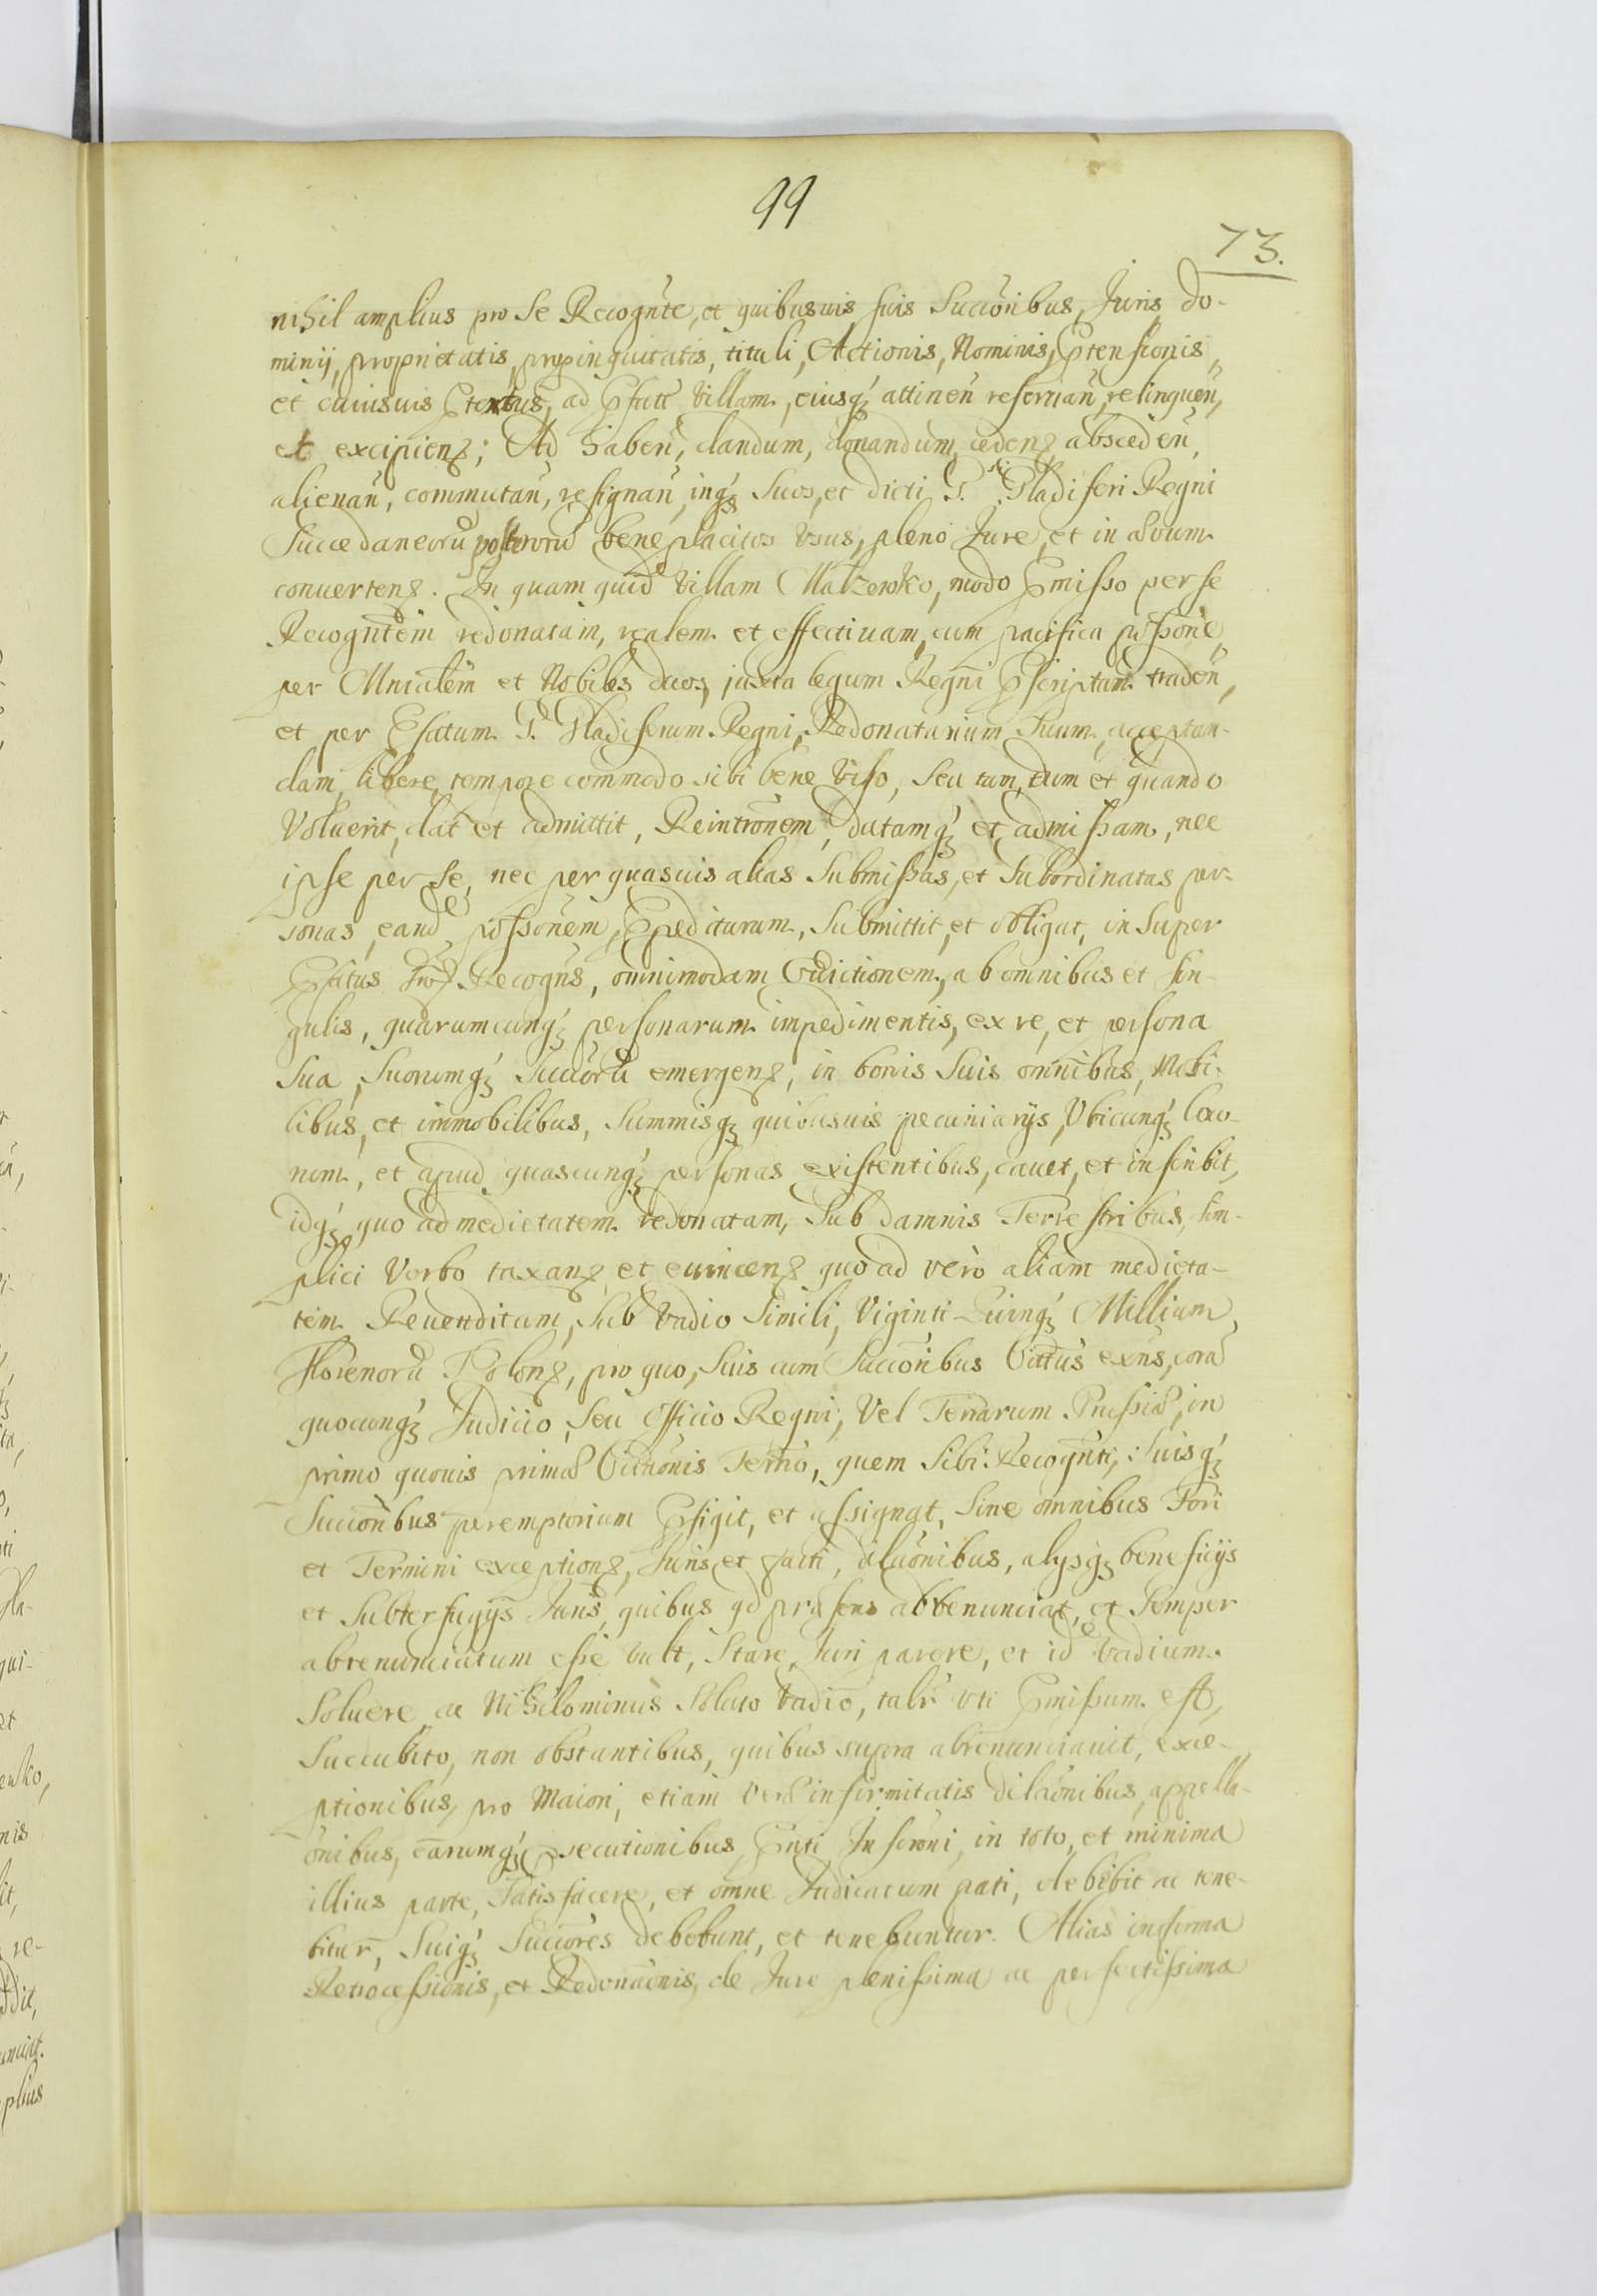 99
73.
nihil amplius pro Se Recognte, et quibusuis suis Succõribus, Juris do-
minij, proprietatis, propinquitatis, tituli, Actionis, Nominis, Ptensionis,
et cuiusuis Ptextus, ad Pfatt Villam, eiusqʒ attinen̄ reseruan̄, relinquen̄,
et excipienʒ; Ad haben̄, dandum, donandum, cedenʒ absceden̄,
alienan̄, commutan̄, resignan̄, inqʒ Suos, et dicti G. Gladiferi Regni
Succedaneorū posterorū beneplacitos Vsus, pleno Jure, et in æuum
conuertenʒ. In quam quid Villam Malzewko, modo Pmisso per se
Recognt̃em redonatam, realem et effectiuam, cum pacifica posšone,
per Mnialẽm et Nobiles duos, juxta legum Regni Pscriptam traden̄,
et per Pfatum G. Gladiferum Regni, Redonatarium Suum, acceptan-
dam, libere, tempore commodo sibi bene Viso, Seu tum, dum et quando
Voluerit, dat et admittit, Reintrõnem, datamqʒ et admissam, nec
ipse per Se, nec per quasuis alias Submissas, et Subordinatas per-
sonas, eand possõnem, Ppediturum, Submittit, et obligat, in Super
Pfatus Recogns, omnimodam Euictionem, ab omnibus et sin-
gulis, quarumcunqʒ personarum impedimentis, ex re, et persona
Sua, Suorumqʒ Succõrū emergenʒ, in bonis Suis omnibus, Mobi-
libus, et immobilibus, Summisqʒ quibusuis pecuniarijs, Vbicunqʒ loco-
rum, et apud quascunqʒ personas existentibus, cauet, et inscribit,
idqʒ quo ad medietatem redonatam, Sub damnis Terrestribus, Sim-
plici Verbo taxanʒ et euincenʒ quo ad verò aliam medieta-
tem Reuenditam, Sub Vadio Simili, Viginti Quinqʒ Millium
Florenorū Polonʒ, pro quo, Suis cum Succõribus Cittus exns, corā
quocunqʒ Judicio, Seu Officio Regni, Vel Terrarum Prussiæ, in
primo quouis primæ Citãonis Termo, quem Sibi Recognti, Suisqʒ
Succõribus peremptorium Pfigit, et assignat, Sine omnibus Fori
et Termini exceptionʒ, Juris et facti, dilaõnibus, alysqʒ beneficijs
et Subterfugijs Juris, quibus qd præsens abrenunciat, et Semper
abrenunciatum esse vult, Stare, Juri parere, et id Vadium
Soluere ac Nihilominùs Soluto Vadio, talr̃ uti Pmissum est,
Succubito, non obstantibus, quibus supra abrenunciauit, exce-
ptionibus, pro Maiori, etiam Veræ infirmitatis dilaõnibus, appella-
õnibus, earumqʒ Psecutionibus, Pnti Inscrõni, in toto, et minima
illius parte, Satisfacere, et omne Iudicatum pati, debebit ac tene-
bitur, Suiqʒ Succõres debebunt, et tenebuntur. Alias in forma
Retrocessionis, et Redonãonis, de Jure plenissima ac perfectissima